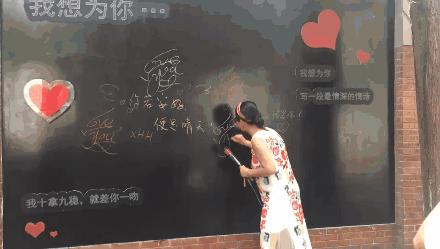 我想为你...
我想为你
写一段最情深的情诗
love
you
你若安好
便是晴天
love
you
XHH
我十拿九稳，就差你一吻